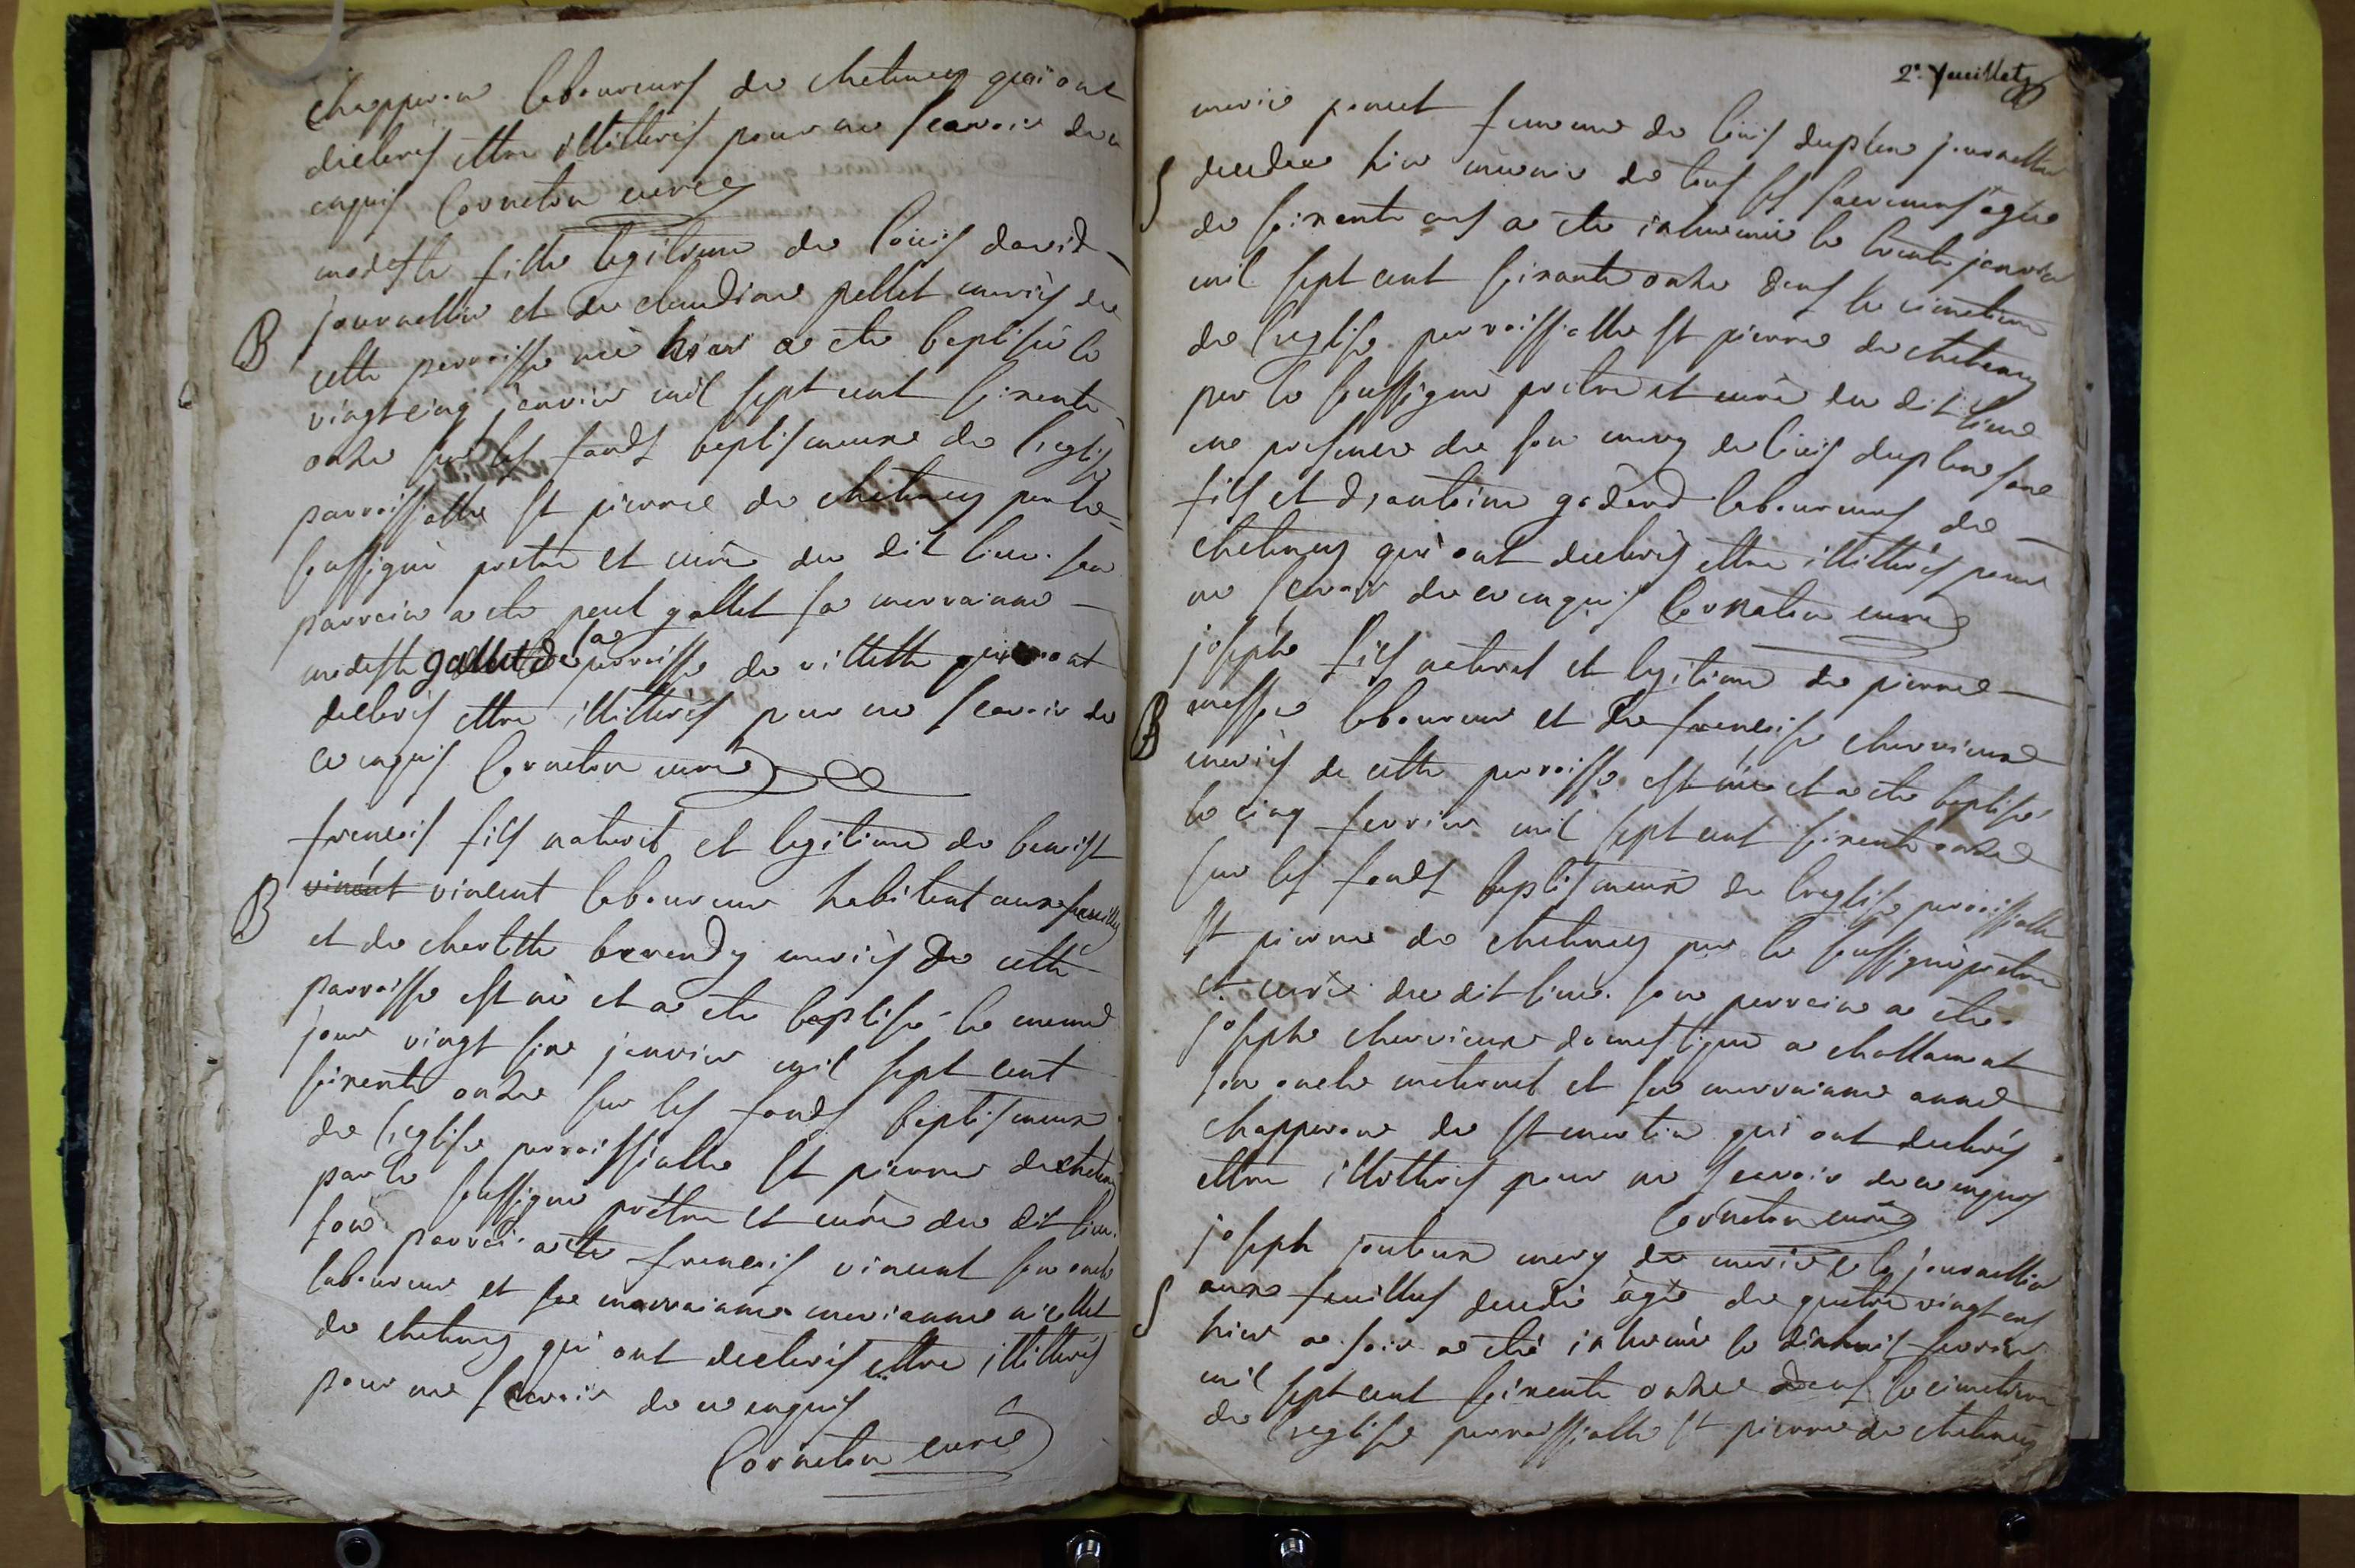 chapperon laboureurs de chatenay qui ont
declarés ettre illitterés pour ne scavoir de ce
enquis Cornaton curé
modeste fille legitime de louis david
B journallier et de claudine pellet mariés de
cette parroisse née hier a ete baptisée le
vingt cinq janvier mil sept cent soixante
onze sur les fonds baptismaux de l'eglise
parroissialle st pierre de chatenay par le
soussigné pretre et curé du dit lieu. son
parrein a ete gallet sa marrainne
modeste gallet de la parroisse de villette qui ont
declarés ettre illitterés pour ne scavoir de
ce enquis Cornaton curé
francois fils naturel et legitime de benoist
B vincent vincent laboureur habitant aux feuilles
et de charlotte mariés de cette
parroisse est né et a ete baptisé le meme
jour vingt six janvier mil sept cent
soixante onze sur les fonds baptismaux
de l'eglise parroissialle st pierre de chatenay
par le soussigné pretre et curé du dit lieu.
son parrei a ete francois vincent son oncle
laboureur et sa marrainne marianne
de chatenay qui ont declarés ettre illitterés
pour ne scavoir de ce enquis
Cornaton curé
2e. feuillet
marie femme de louis duplan journallier
S decedee hier munie de tous les sacremens agée
de soixante ans a ete inhumée le trente janvier
mil sept cent soixante onze dans le cimetiere
de l'eglise parroissialle st pierre de chatenay
par le soussigné pretre et curé du dit lieu
en presence de son mary de louis duplan son
fils et d'antoine godard laboureurs de
chatenay qui ont declarés ettre illitterés pour
ne scavoir de ce enquis Cornaton curé
josephe fils naturel et legitime de pierre
B laboureur et de francoise charvieux
mariés de cette parroisse est née et a ete baptisé
le cinq fevrier mil sept cent soixante onze
sur les fonds baptismaux de l'eglise parroissialle
st pierre de chatenay par le soussigné pretre
et curé du dit lieu. son parrein a ete
josephe charvieux domestique a challamont
son oncle maternel et sa marrainne anne
chapperon de st martin qui ont declarés
ettre illitterés pour ne scavoir de ce enquis
Cornaton curé
joseph mary de marie journallier
S aux feuilles decedé agé de quatre vingt ans
hier a soir a eté inhumé le fevrier
mil sept cent soixante onze dans le cimetiere
de l'eglise parroissialle st pierre de chatenay